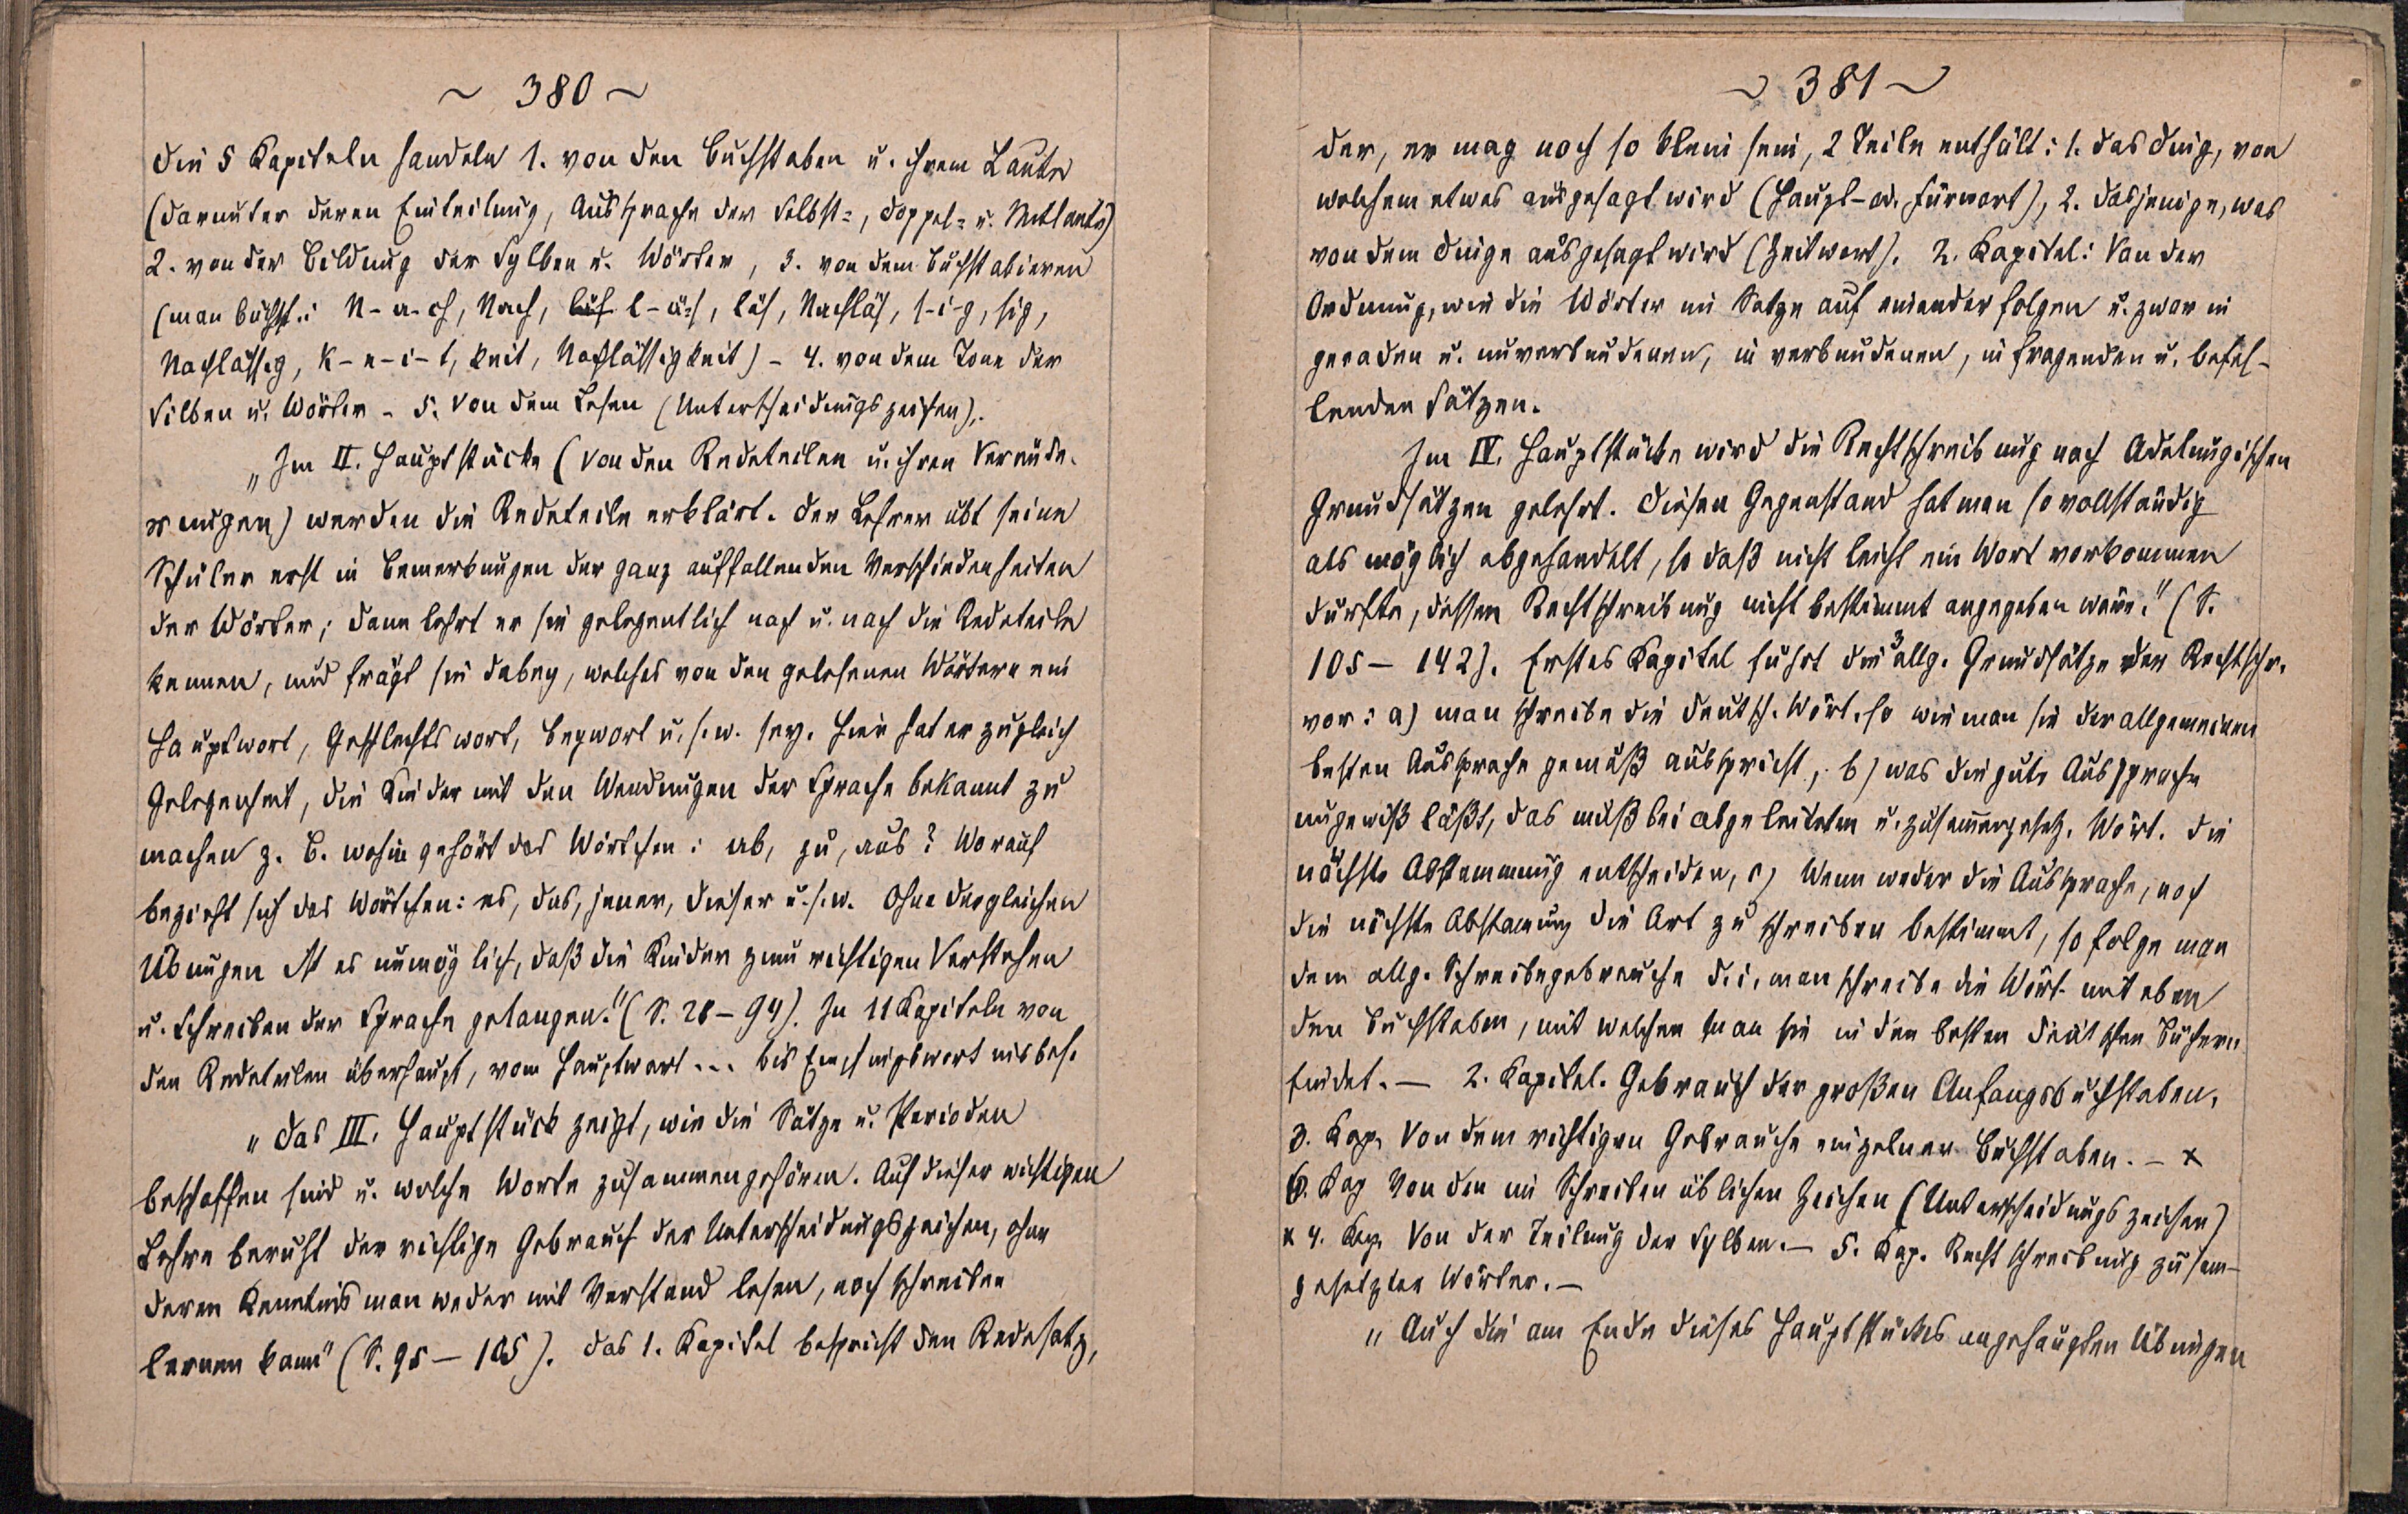 ~ 380 ~
Die 5 Kapiteln handeln 1. von den Buchstaben u. ihrem Laute
(darunter deren Einteilung, Aussprache der Selbst=, Doppel= u. Mitlaute)
2. von der Bildung der Sylben u. Wörter, 3. von dem Buchstabieren
(man buchst.: N-a-ch, Nach, läs l-ä-s, läs, Nachläs, s-i-g, sig,
Nachlässig, k-e-i-t, keit, Nachlässigkeit) - 4. von dem Tone der
Silben u. Wörter - 5. Von dem Lesen (Unterscheidungszeichen).
„Im II. Hauptstücke (von den Redeteilen u. ihren Verände-
rungen) werden die Redeteile erklärt. Der Lehrer übt seine
Schüler erst in Bemerkungen der ganz auffallenden Verschiedenheiten
der Wörter; dann lehrt er sie gelegentlich nach u. nach die Redeteile
kennen, und frägt sie dabey, welches von den gelesenen Wörtern ein
Hauptwort, Geschlechtswort, Beywort u. s. w. sey. Hier hat er zugleich
Gelegenheit, die Kinder mit den Wendungen der Sprache bekannt zu
machen z. B. wohin gehört das Wörtchen: ab, zu, aus? Worauf
bezieht sich das Wörtchen: es, das, jener, dieser u. s. w. Ohne dergleichen
Übungen ist es unmöglich, daß die Kinder zum richtigen Verstehen
u. Schreiben der Sprache gelangen." (S. 28 - 94). In 11 Kapiteln von
den Redeteilen überhaupt, vom Hauptwort ... bis Empfindgswort insbes.
„Das III. Hauptstück zeigt, wie die Sätze u. Perioden
beschaffen sind u. welche Worte zusammengehören. Auf dieser wichtigen
Lehre beruht der richtige Gebrauch der Unterscheidungszeichen, ohne
deren Kenntnis man weder mit Verstand lesen, noch schreiben
lernen kann" (S. 95 - 105). Das 1. Kapitel bespricht den Redesatz,
~ 381 ~
der, er mag noch so klein sein, 2 Teile enthält: 1. das Ding, von
welchem etwas ausgesagt wird (Haupt- od. Fürwort), 2. dasjenige, was
von dem Dinge ausgesagt wird (Zeitwort). 2. Kapitel: Von der
Ordnung, wie die Wörter im Satze auf einander folgen u. zwar in
geraden u. unverbundenen, in verbundenen, in fragenden u. befeh-
lenden Sätzen.
Im IV. Hauptstücke wird die Rechtschreibung nach Adelungischen
Grundsätzen gelehrt. Diesen Gegenstand hat man so vollständig
als möglich abgehandelt, so daß nicht leicht ein Wort vorkommen
dürfte, dessen Rechtschreibung nicht bestimmt angegeben wäre." (S.
105 - 142). Erstes Kapitel führt die 3 allg. Grundsätze der Rechtschr.
vor: a) man schreibe die deutsch. Wört. so wie man sie der allgemeinen
besten Aussprache gemäß ausspricht, b) was die gute Aussprache
ungewiß läßt, das muß bei abgeleiteten u. zusammengesetz. Wört. die
nächste Abstammung entscheiden, c) Wenn weder die Aussprache, noch
die nächste Abstammung die Art zu schreiben bestimmt, so folge man
dem allg. Schreibegebrauche d. i. man schreibe die Wört. mit eben
den Buchstaben, mit welchen man sie in den besten deutschen Büchern
findet. — 2. Kapitel. Gebrauch der großen Anfangsbuchstaben,
3. Kap. Von dem richtigen Gebrauche einzelner Buchstaben. - x
6. Kap Von den im Schreiben üblichen Zeichen (Unterscheidungszeichen)
x 4. Kap. Von der Teilung der Sylben. — 5. Kap. Rechtschreibung zusam-
gesetzter Wörter. —
„Auch die am Ende dieses Hauptstückes angehängten Übungen